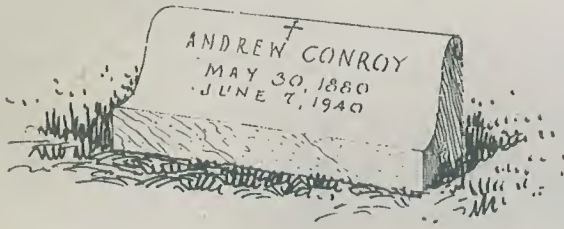 ANDREW CONROY
MAY 30, 1880
JUNE 7, 1940